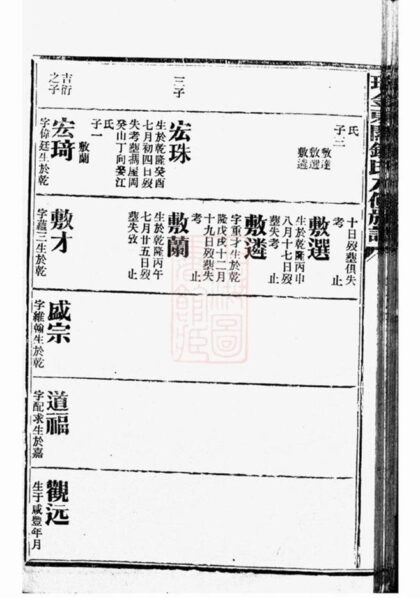 氏
子三
敷達
敷選
敷遴
三子
宏珠
生於乾隆癸酉
七月初四日歿
失考塟獁屋崗
癸山丁向娶江
氏
子一
敷蘭
吉衍
之子
宏琦
字偉廷生於乾
十日歿塟俱失
考 止
敷選
生於乾隆丙申
八月十七日歿
塟失考 止
敷遴
字重才生於乾
隆戊戌十二月
十九日歿塟失
考 止
敷蘭
生於乾隆丙午
七月廿五日歿
塟失攷 止
敷才
字蘊三生於乾
盛宗
字維翰生於乾
道福
字配求生於嘉
觀远
生于咸豐年月